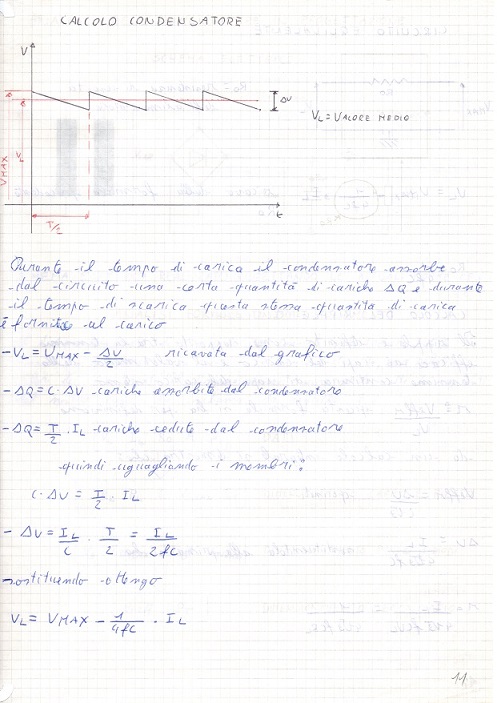 CALCOLO CONDENSATORE
V
ΔV
VL = VALORE MEDIO
VMAX
VL
t
T/2
Durante il tempo di carica il condensatore assorbe
dal circuito una certa quantità di cariche ΔQ e durante
il tempo di scarica questa stessa quantità di carica
è fornita al carico
- VL = VMAX - ΔV/2 ricavata dal grafico
- ΔQ = C · ΔV cariche assorbite dal condensatore
- ΔQ = T/2 · IL cariche cedute dal condensatore
quindi uguagliando i membri:
C · ΔV = T/2 · IL
- ΔV = IL/C · T/2 = IL/2fC
sostituendo ottengo
VL = VMAX - 1/4fC · IL
11